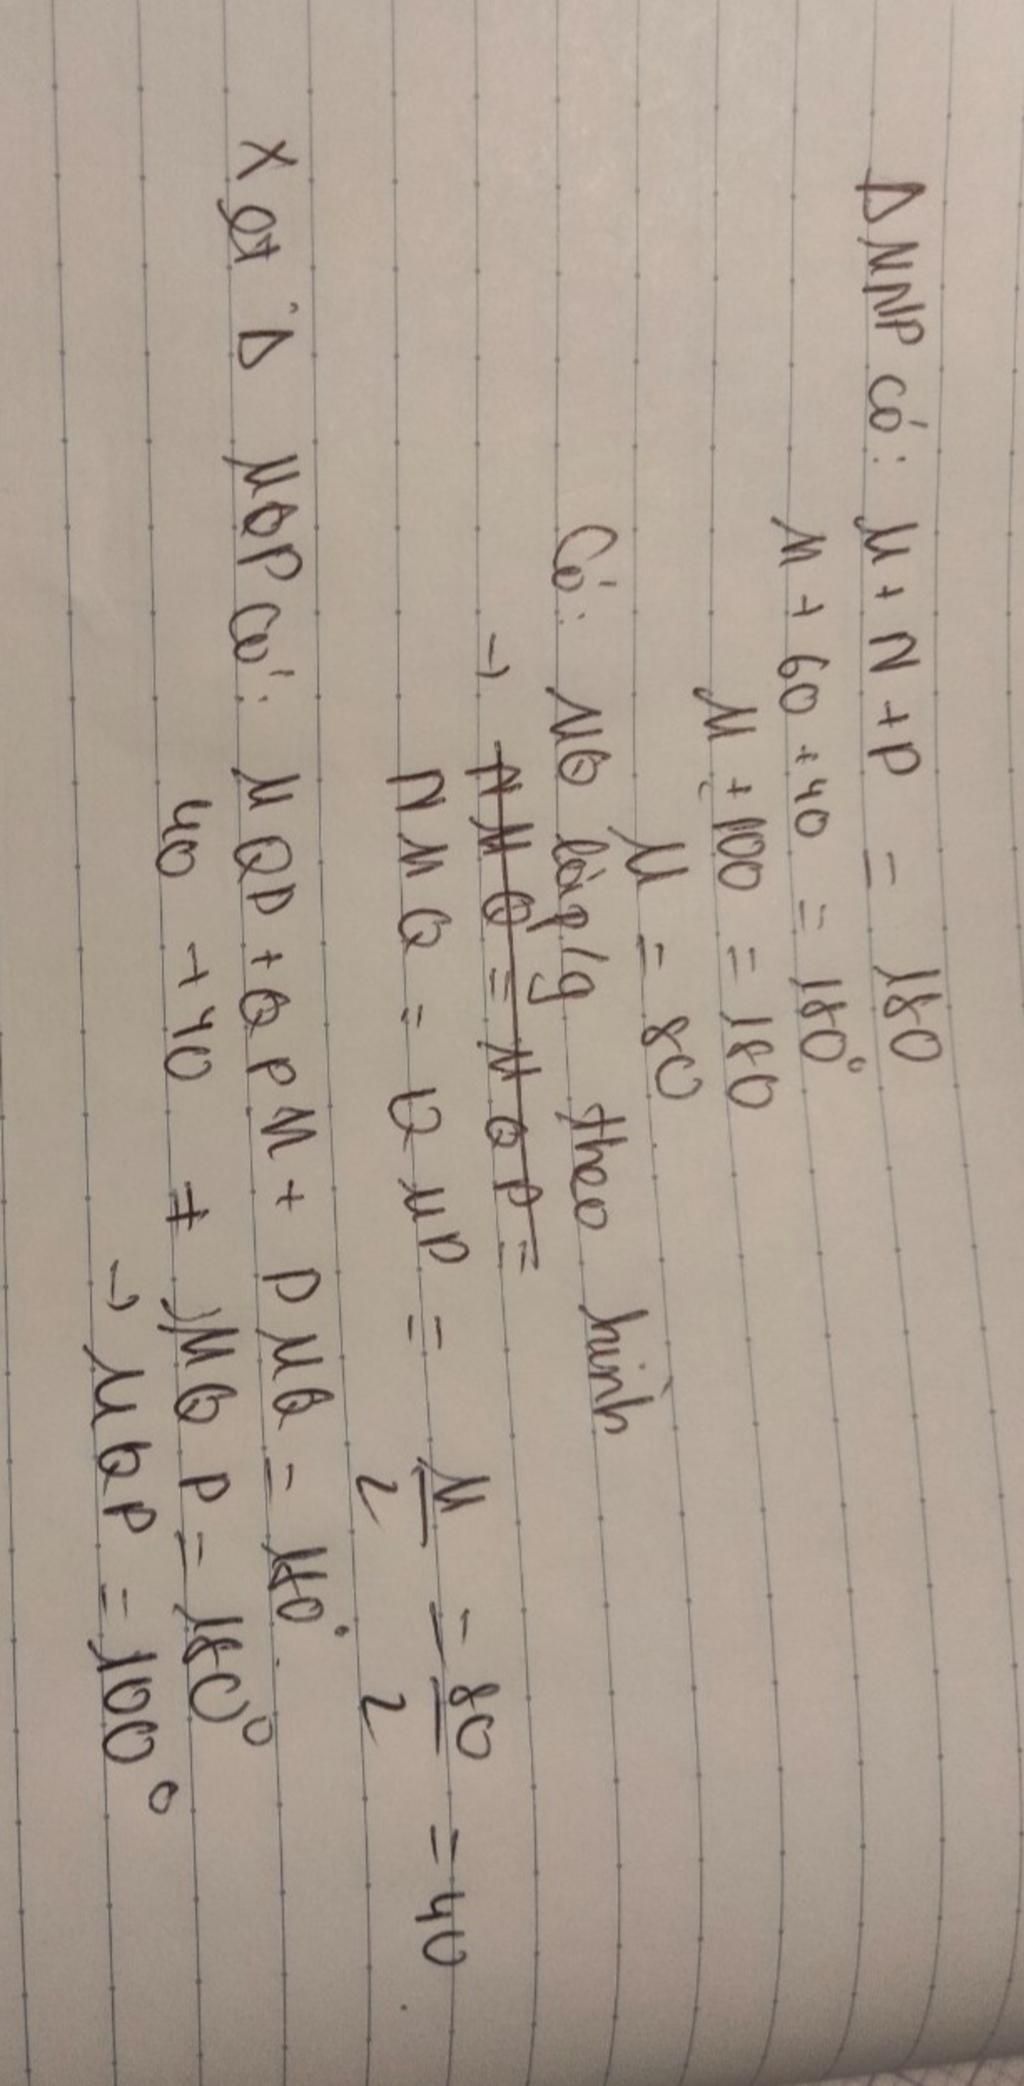 Δ MNP có: M + N + P = 180
M + 60 + 40 = 180°
M + 100 = 180
M = 80
Có: MQ là p/g theo hình
→ NMQ = MQP =
NMQ = QMP = M/2 = 80/2 = 40
Xét Δ MQP Có: MQP + QPM + PMQ = 180°.
40 + 40 + MQP = 180°
→ MQP = 100°